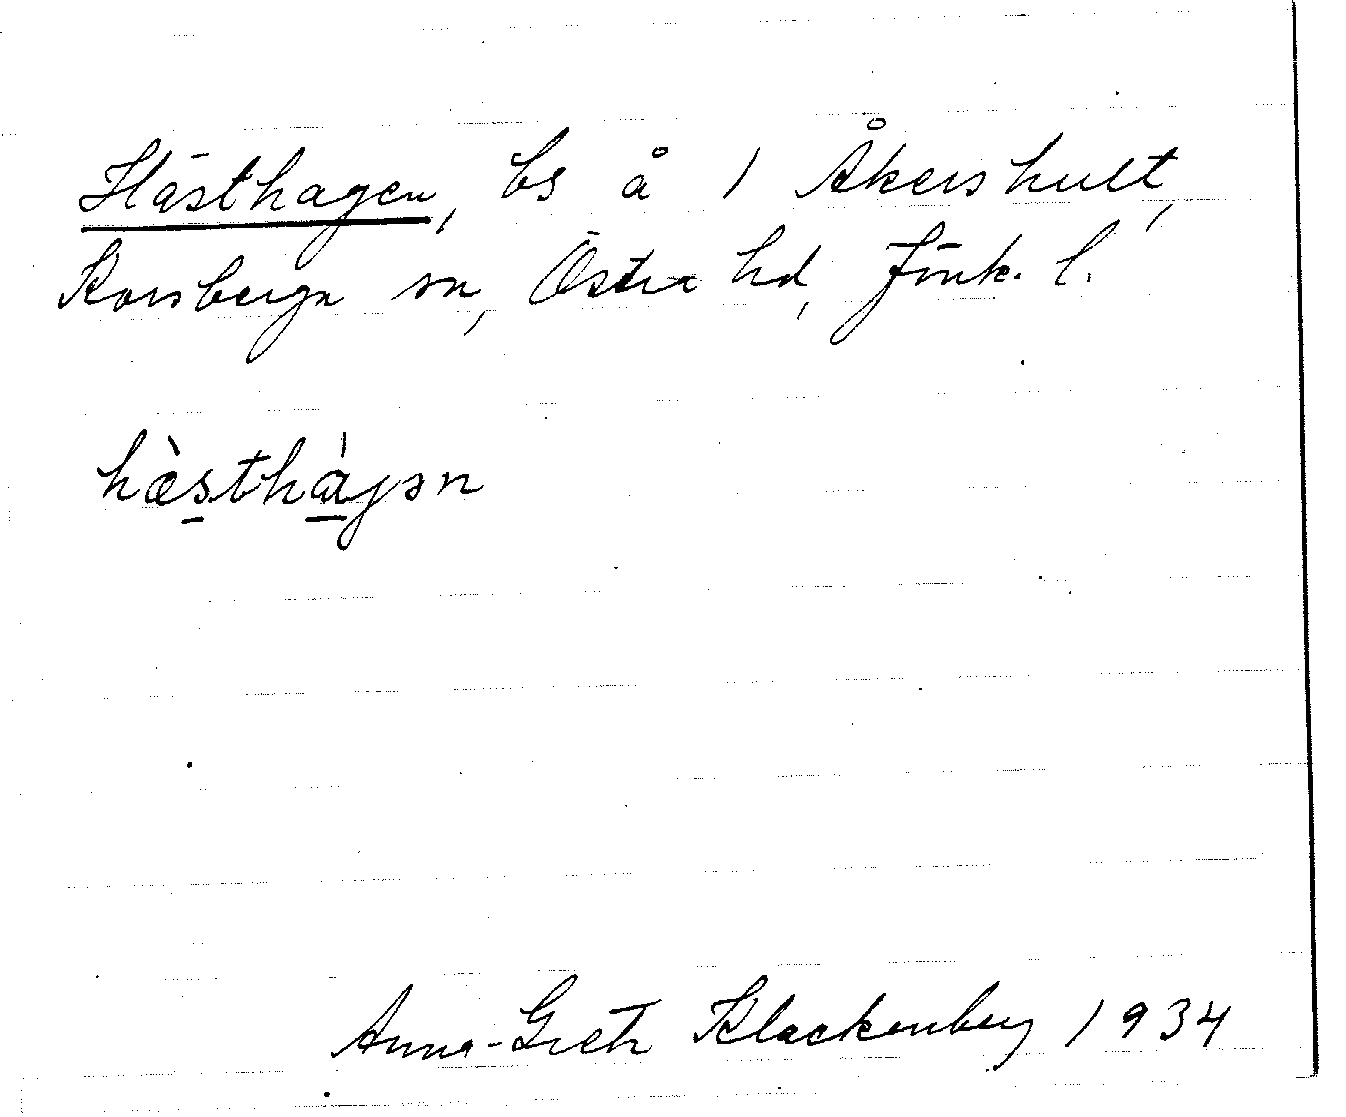 Hästhagen, bs å 1 Åkershult,
Korsberga sn, Östra hd, Jönk. l.
hæ̀sthàɡən
Anna-Greta Klackenberg 1934